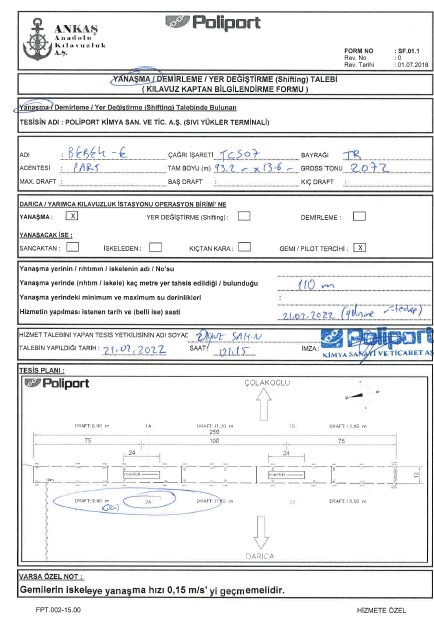 ANKAŞ
Anadolu
Kılavuzluk
A.Ş.
Poliport
FORM NO : SF.01.1
Rev. No : 0
Rev. Tarihi : 01.07.2018
YANAŞMA / DEMİRLEME / YER DEĞİŞTİRME (Shifting) TALEBİ
( KILAVUZ KAPTAN BİLGİLENDİRME FORMU )
Yanaşma / Demirleme / Yer Değiştirme (Shifting) Talebinde Bulunan
TESİSİN ADI : POLİPORT KİMYA SAN. VE TİC. A.Ş. (SIVI YÜKLER TERMİNALİ)
ADI : BEBEK-E ÇAĞRI İŞARETİ : TCSO7 BAYRAĞI TR
ACENTESİ : PART TAM BOYU (m) 93.2 - x 13.6 - GROSS TONU 2072
MAX. DRAFT : BAŞ DRAFT : KIÇ DRAFT :
DARICA / YARIMCA KILAVUZLUK İSTASYONU OPERASYON BİRİMİ' NE
YANAŞMA : X YER DEĞİŞTİRME (Shifting) : DEMİRLEME :
YANAŞACAK İSE :
SANCAKTAN : İSKELEDEN : KIÇTAN KARA : GEMİ / PİLOT TERCİHİ : X
Yanaşma yerinin / rıhtımın / iskelenin adı / No'su
Yanaşma yerinde (rıhtım / iskele) kaç metre yer tahsis edildiği / bulunduğu 110 m
Yanaşma yerindeki minimum ve maximum su derinlikleri :
Hizmetin yapılması istenen tarih ve (belli ise) saati 21.02.2022
HİZMET TALEBİNİ YAPAN TESİS YETKİLİSİNİN ADI SOYADI
TALEBİN YAPILDIĞI TARİH : 21.02.2022 SAAT : 01.15 İMZA :
Poliport
KİMYA SANAYİ VE TİCARET AŞ
TESİS PLANI :
Poliport
ÇOLAKOĞLU
DRAFT:9.90 m 1A DRAFT:11.50 m 1B DRAFT:13.50 m
250
75 100 75
24 24
DRAFT:9.90 m 2A DRAFT:11.50 m 2B DRAFT:13.50 m
DARICA
VARSA ÖZEL NOT :
Gemilerin iskeleye yanaşma hızı 0,15 m/s' yi geçmemelidir.
FPT.002-15.00 HİZMETE ÖZEL